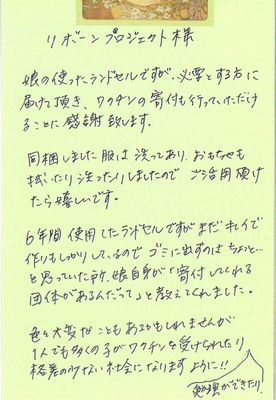 リボーンプロジェクト様
娘の使ったランドセルですが、必要とする方に
届けて頂き、ワクチンの寄付も行っていただけ
ることに感謝致します。
同梱しました服は洗ってあり、おもちゃも
拭いたり洗ったりしましたので ご活用頂け
たら嬉しいです。
6年間使用したランドセルですがまだキレイで
作りもしっかりしているのでゴミに出すのはちょっと…
と思っていた所、娘自身が「寄付してくれる
団体があるんだって」と教えてくれました。
色々大変なこともあるかもしれませんが
1人でも多くの子がワクチンを受けられたり
格差の少ない社会になりますように!!
勉強ができたり